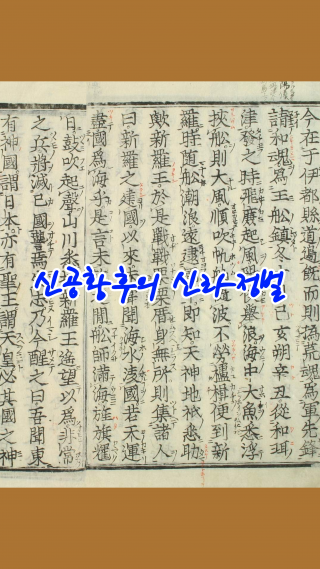 今在于伊都縣道邊既而則撝荒魂爲軍先鋒
請和魂爲王船鎭冬十月己亥朔辛丑從和珥
津發之時飛廉起風擧浪海中大魚悉浮
扶船則大風順吹帆舶隨波不勞櫨楫便到新
羅時隨船潮浪遠逮即知天神地祇悉助
歟新羅王於是戰戰慄慄厝身無所則集諸人
曰新羅之建國以來未嘗聞海水凌國若天運
盡國爲海乎是言未間船師滿海旌旗耀
日鼓吹起聲山川悉新羅王遙望以爲非常
之兵將滅己國讋焉志乃今醒之曰吾聞東
有神國謂日本亦有聖王謂天皇必其國之神
신공황후의 신라정벌